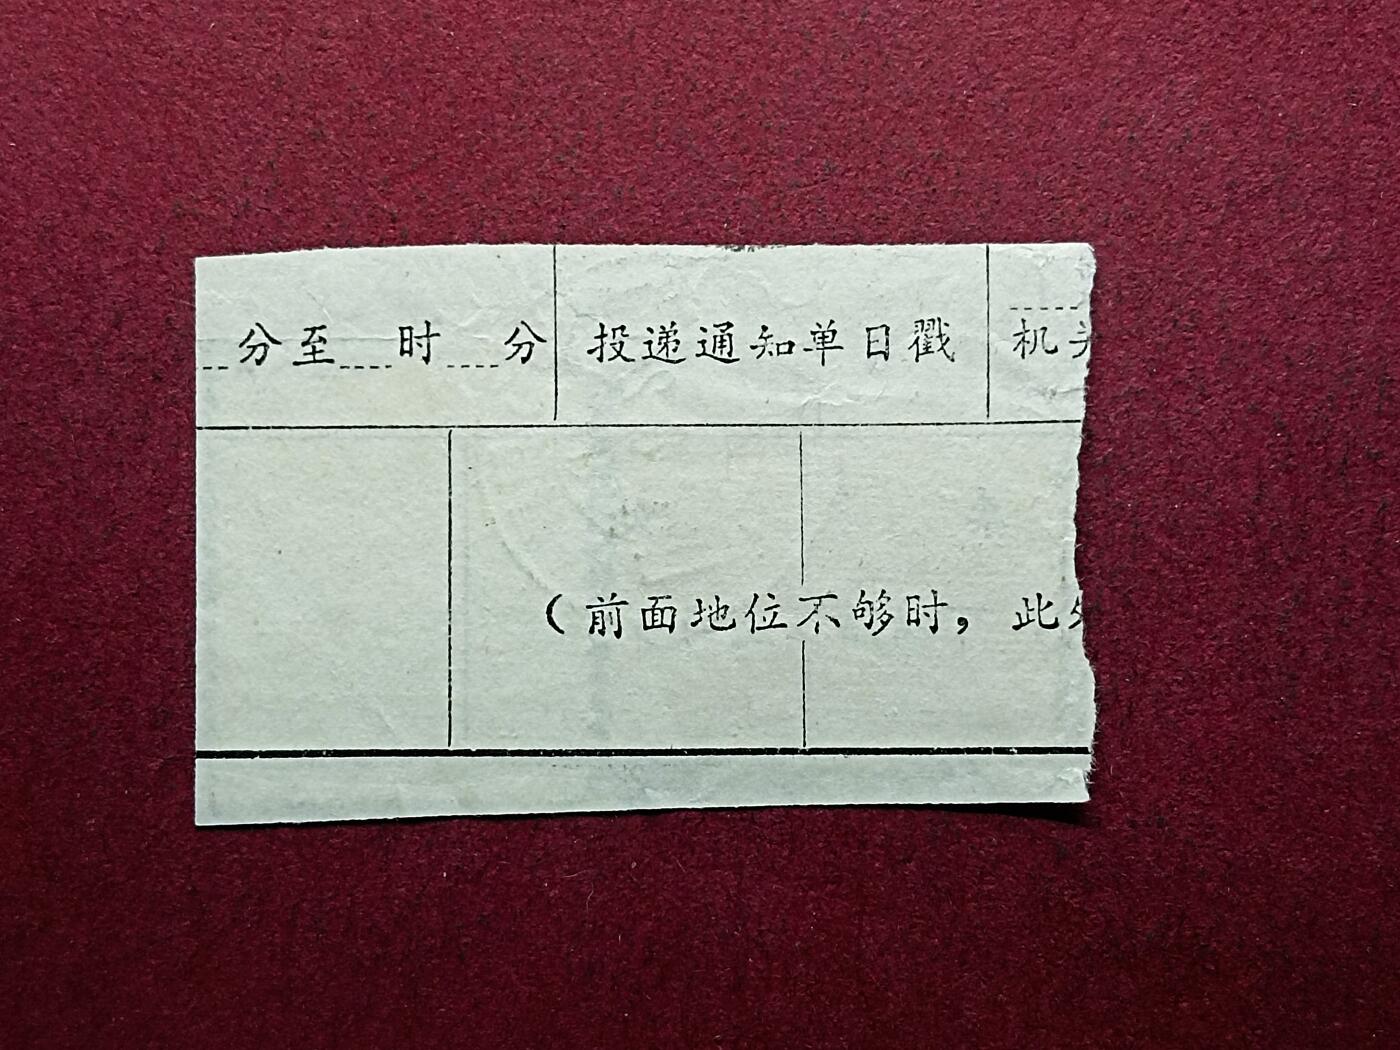 分至 时 分 投递通知单日戳 机
(前面地位不够时，此